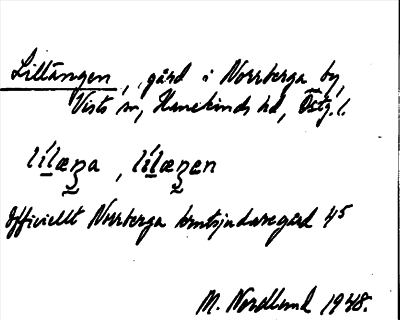 Lillängen, gård i Norrberga by,
Vists sn, Hanekinds hd, Östg. l.
lílæŋa, lílæŋen
Officiellt Norrberga 4⁵
M. Nordlund 1948.